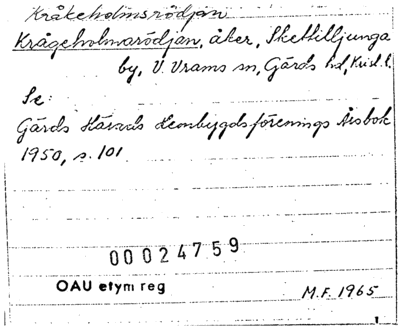 Kråkeholmsrödjan
Krågeholmarödjan, åker, Skettilljunga
by, V. Vrams sn, Gärds hd, Krist. l.
Se:
Gärds Härads Hembygdsförenings Årsbok
1950, s. 101
00024759
OAU etym reg
M.F. 1965